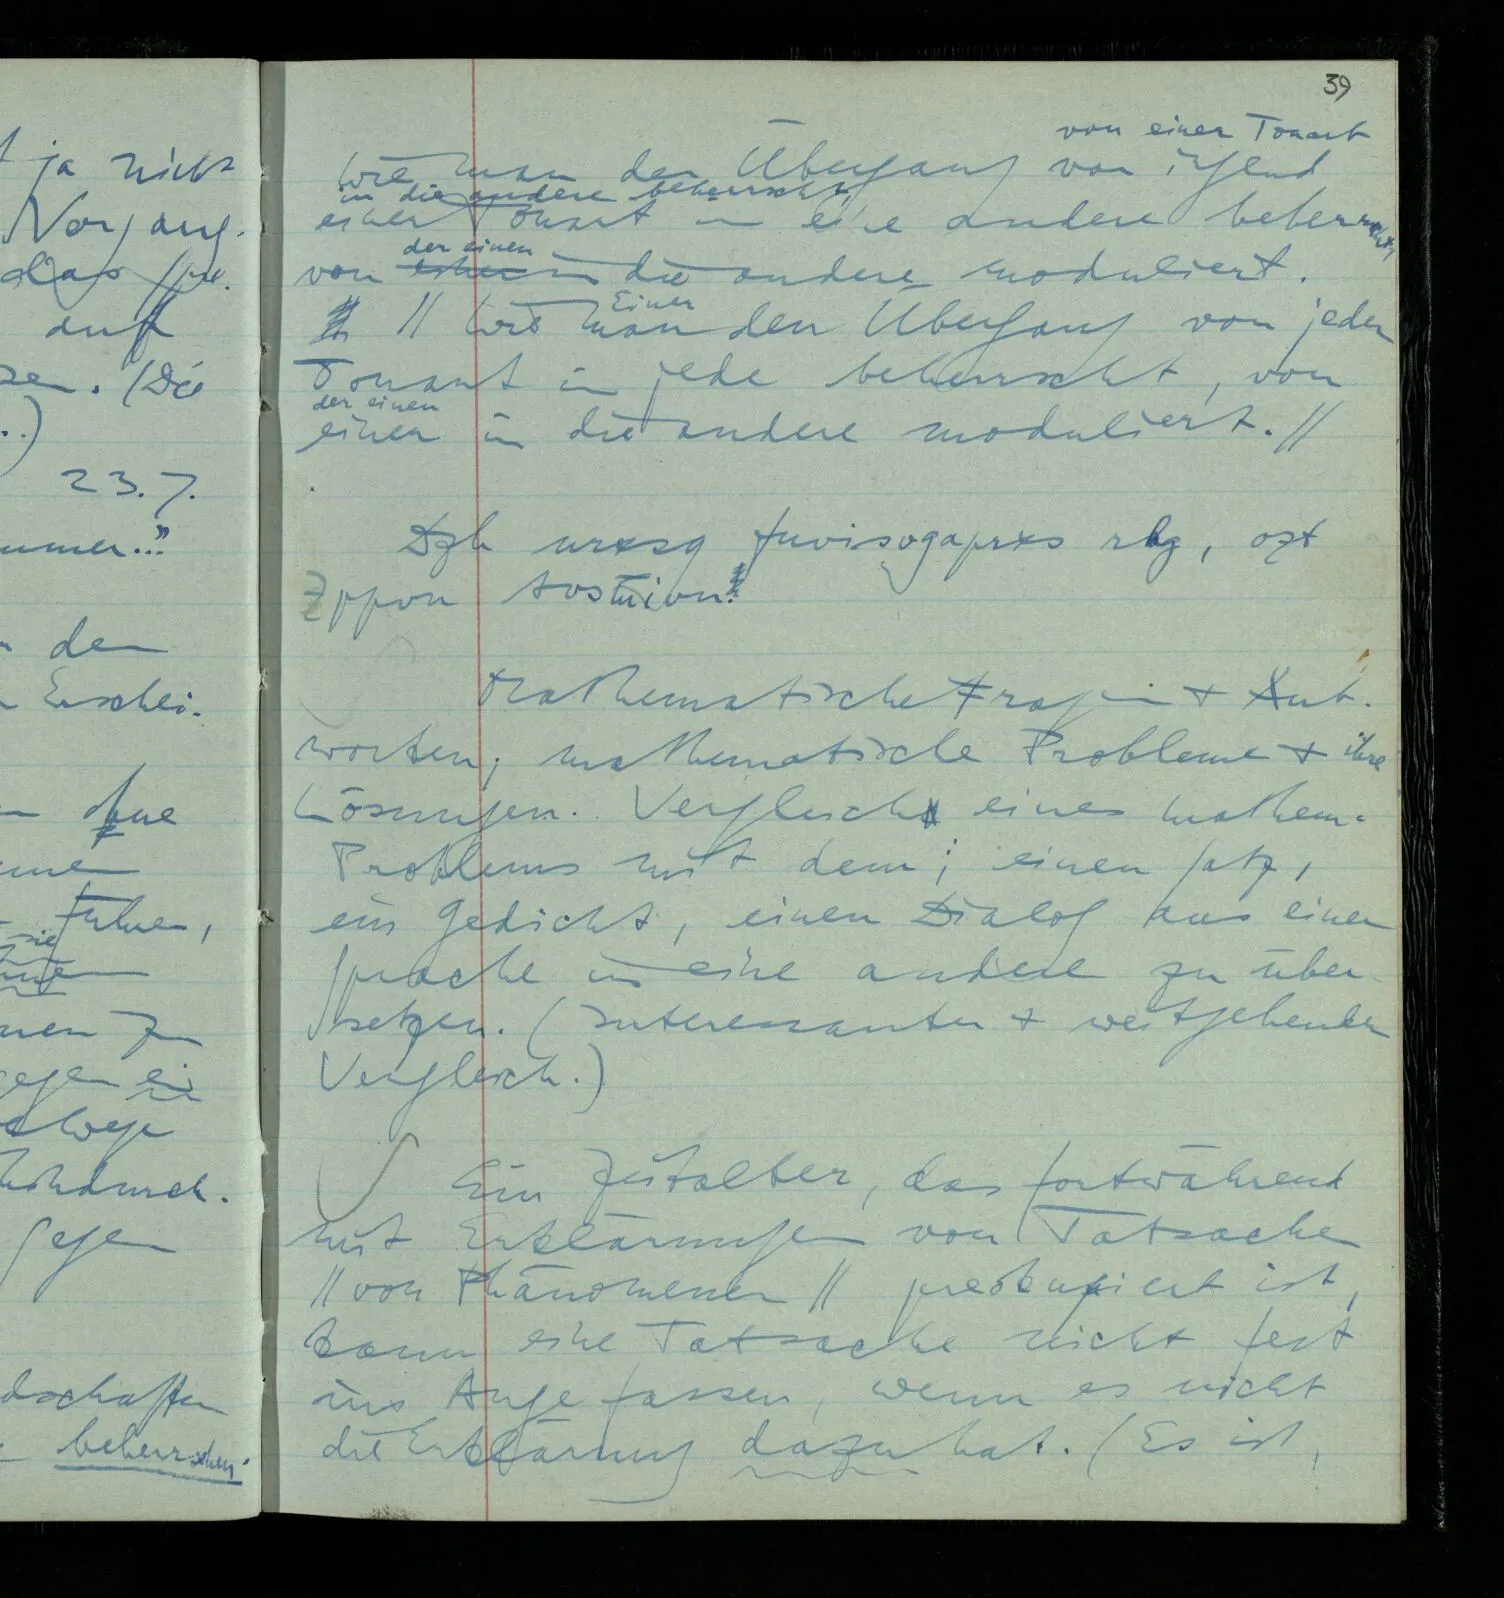 t ja nicht
Vorgang.
das
auf
(Die
..)
23.7.
den
Erschei-
ohne
führen,
sie
ein
gegen
beherrschen
39
von einer Tonart
wie man den Übergang von irgend
in die andere beherrscht
einer Tonart in eine andere beherrscht,
der einen
von einer in die andere moduliert.
Einer
// wie man den Übergang von jeder
Tonart in jede beherrscht, von
der einen
einer in die andere moduliert.//
Dzh urxsg fuvisogaprxs rhg, ozt
Zppvn
Mathematische Fragen + Ant-
worten; mathematische Probleme + ihre
Lösungen. Vergleich eines mathem.
Problems mit dem; einen Satz,
ein Gedicht, einen Dialog aus einer
Sprache in eine andere zu über-
setzen. (Interessanter + weitgehender
Vergleich.)
Ein Zeitalter, das fortwährend
mit Erklärungen von Tatsachen
// von Phänomenen // preokupiert ist,
kann eine Tatsache nicht fest
ins Auge fassen, wenn es nicht
die Erklärung dazu hat. (Es ist,